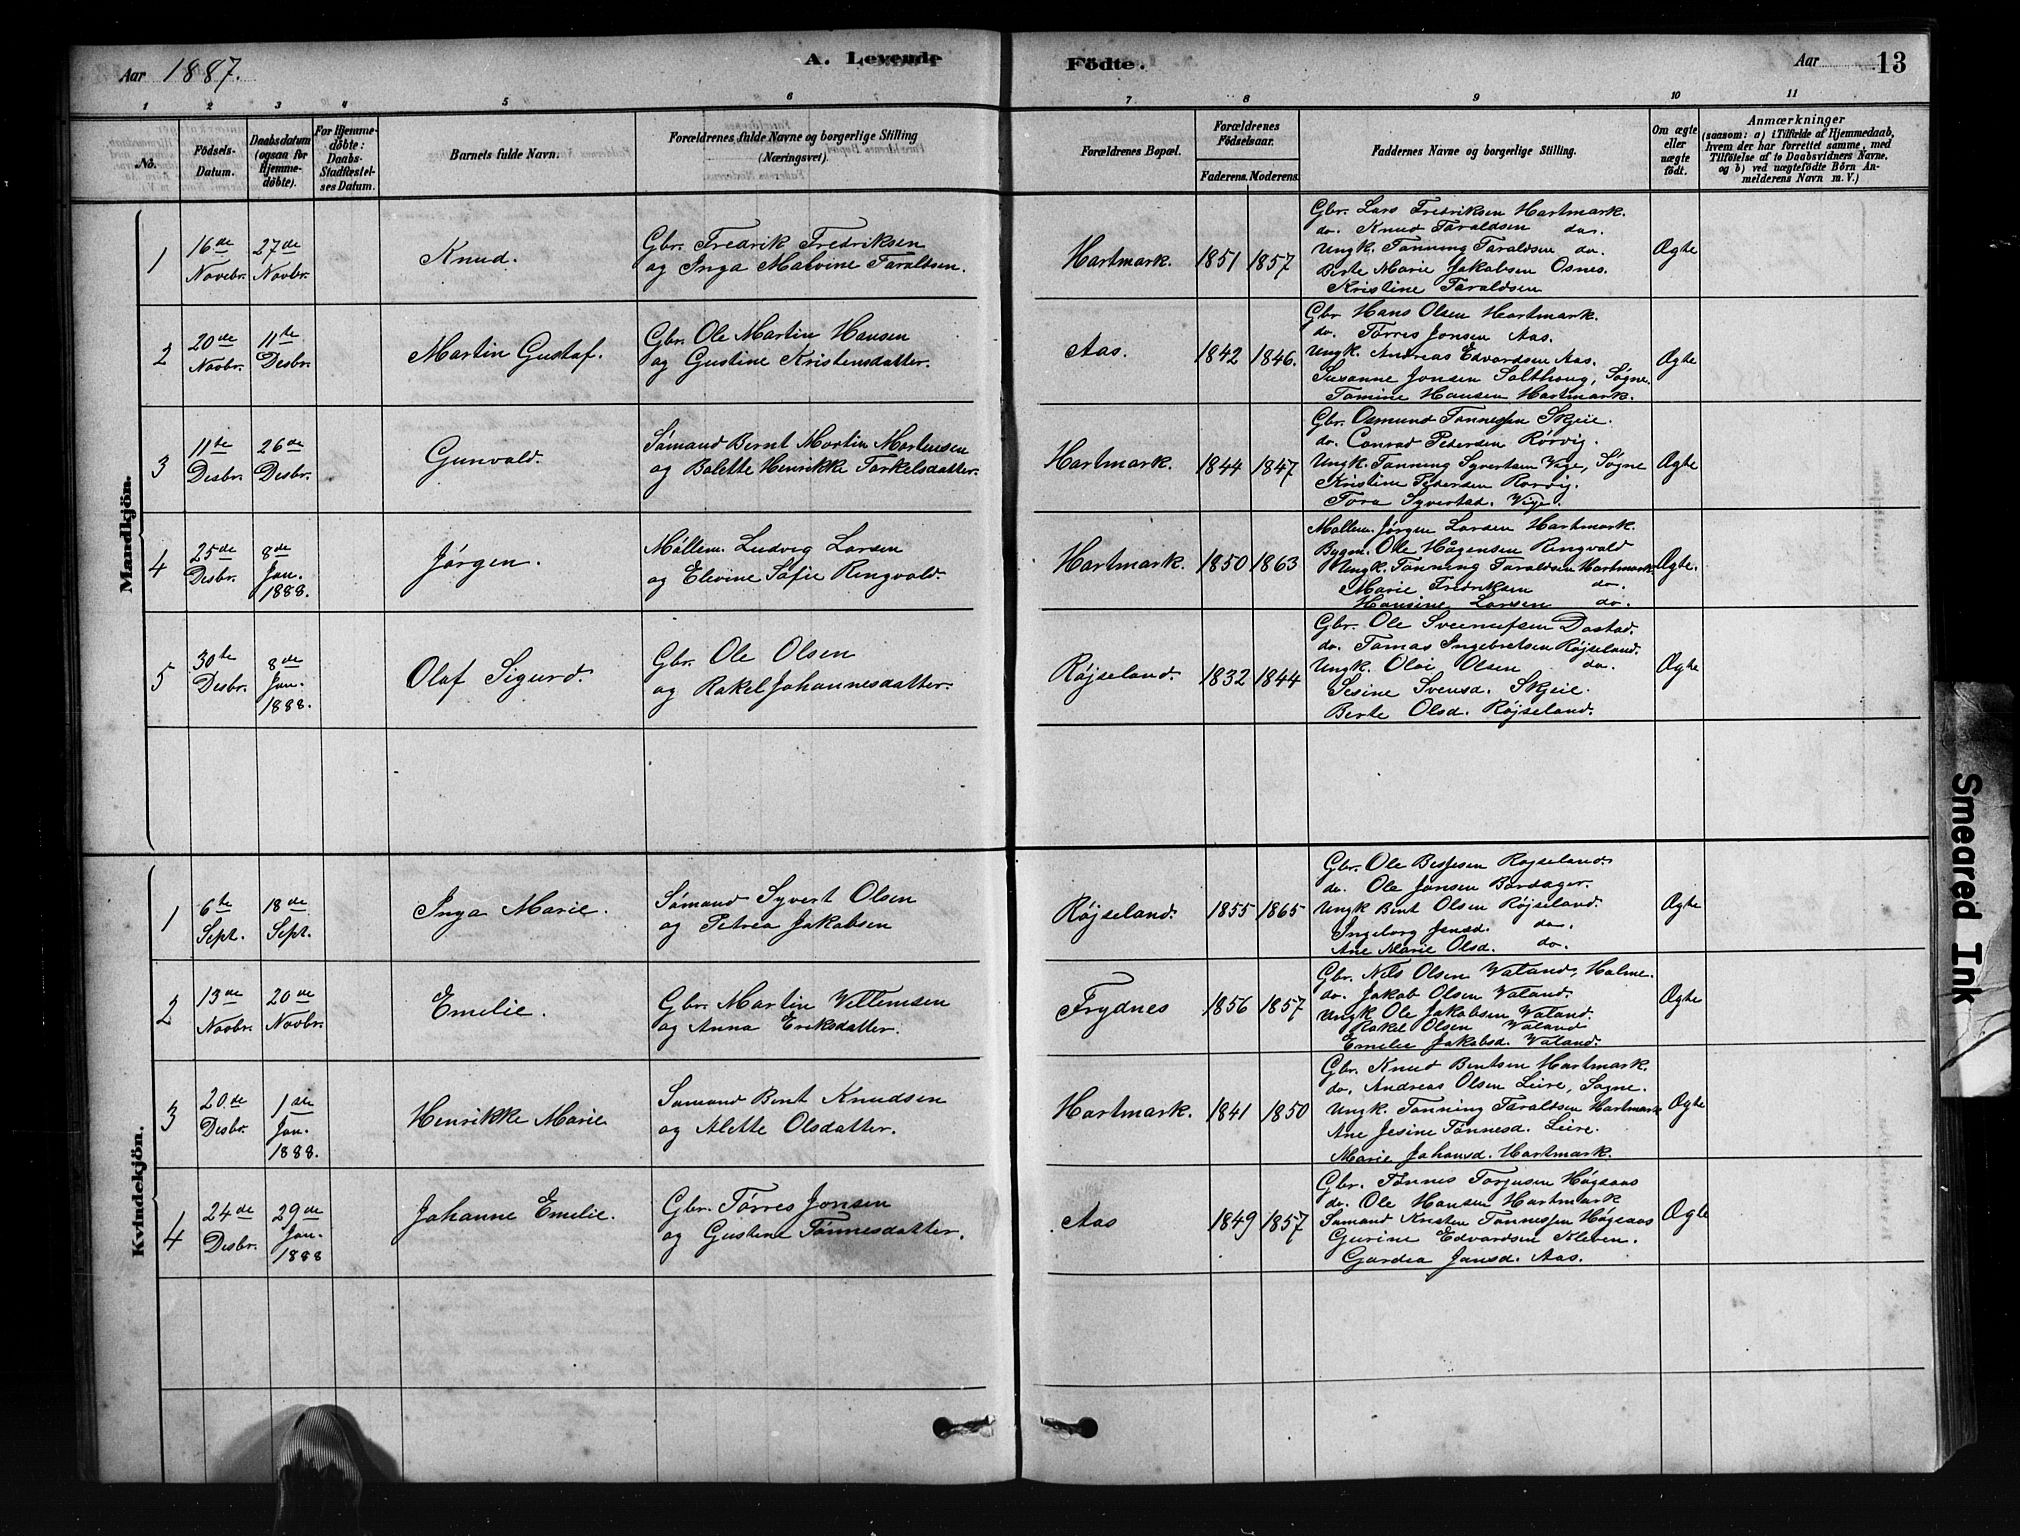 Aar 1887. A. Levende Födte. Aar 13
1 2 3 4 5 6 7 8 9 10 11
No.
Födsels-Datum.
Daabsdatum (ogsaa for Hjemme-döbte).
For Hjemme-döbte: Daabs-Stadfæstel-ses Datum.
Barnets fulde Navn.
Forældrenes fulde Navne og borgerlige Stilling (Næringsvei).
Forældrenes Bopæl.
Forældrenes Födselsaar.
Faderens. Moderens.
Faddernes Navne og borgerlige Stilling.
Om ægte eller uægte födt.
Anmærkninger
(saasom: a) i Tilfælde af Hjemmedaab, hvem der har forrettet samme, med Tilföielse af to Daabsvidners Navne, og b) ved uægtefödte Börn An-melderens Navn m. V.)
Mandkjön.
1 16de Novebr. 27de Novbr. Knud. Gbr. Fredrik Fredriksen
og Inga Malvine Taraldsen. Hartmark. 1851 1857 Ægte
Gbr. Lars Fredriksen Hartmark.
do. Knud Taraldsen do.
Ungk. Tønning Taraldsen do.
Berte Marie Jakobsen Osnes.
Kristine Taraldsen
2 20de Novbr. 11te Desbr. Martin Gustaf. Gbr. Ole Martin Hansen
og Gustine Kristensdatter. Aas. 1842 1846. Ægte
Gbr. Hans Olsen Hartmark.
do. Tørres Jonsen Aas.
Ungk. Andreas Edvardsen Aas.
Susanne Jonsen Salthoug, Søgne.
Tomine Hansen Hartmark.
3 11te Desbr. 26de Desbr. Gunvald. Sømand Bernt Martin Mortensen
og Bolette Henrikke Torkelsdatter. Hartmark. 1844 1847 Ægte
Gbr. Osmund Tønnessen Skjeie.
do. Conrad Pedersen Rørvig.
Ungk. Tønning Syvertsen Vige, Søgne
Kristine Pedersen Rørvig.
Tora Syvertsd. Vige.
4 25de Desbr. 8de Jan. 1888. Jørgen. Møllem. Ludvig Larsen
og Elevine Sofie Ringvold. Hartmark. 1850 1863 Ægte.
Møllem. Jørgen Larsen Hartmark.
Bygm. Ole Hågensen Ringvold
Ungk. Tønning Taraldsen Hartmark
Marie Fredriksen do.
Hansine Larsen do.
5 30te Desbr. 8de Jan. 1888. Olaf Sigurd. Gbr. Ole Olsen
og Rakel Johannesdatter. Røjseland. 1832 1844 Ægte
Gbr. Ole Dostad.
do. Tomas Ingebretsen Røjseland.
Ungk. Olai Olsen do.
Sesine Svensd. Skjeie.
Berte Olsd. Røjseland.
Kvindekjön.
1 6te Sept. 18de Sept. Inga Marie. Sømand Syvert Olsen
og Petrea Jakobsen Røjseland. 1855 1865 Ægte
Gbr. Ole Røjseland.
do. Ole Jansen Bordager.
Ungk Bent Olsen Røjseland.
Ingeborg Jensd. do.
Ane Marie Olsd. do.
2 13de Novbr. 20de Novbr. Emilie. Gbr. Martin Villemsen
og Anna Eriksdatter. Frydnes 1856 1857 Ægte
Gbr. Nils Olsen Valand, Holme.
do. Jakob Olsen Valand.
Ungk Ole Jakobsen Valand.
Rakel Olsen Valand
Emelie Jakobsd. Valand.
3 20de Desbr. 1ste Jan. 1888. Henrikke Marie Sømand Bent Knudsen
og Alette Olsdatter. Hartmark. 1841 1850 Ægte
Gbr. Knud Bentsen Hartmark.
do. Andreas Olsen Leire, Søgne.
Ungk. Tønning Taraldsen Hartmark
Ane Jesine Tønnesd. Leire.
Marie Johansd. Hartmark.
4 24de Desbr. 29de Jan. 1888 Johanne Emelie. Gbr. Tørres Jonsen
og Gustine Tønnesdatter. Aas 1849 1857 Ægte
Gbr. Tønnes Torjussen Høgaas
do. Ole Hansen Hartmark
Sømand Kristen Tønnessen Høgaas
Gurine Edvardsen Kleven.
Gardea Jansd. Aas.
Smeared Ink